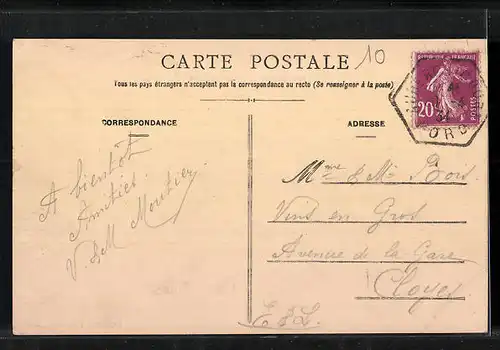 CARTE POSTALE
10
Tous les pays étrangers n'acceptent pas la correspondance au recto (Se renseigner à la poste)
CORRESPONDANCE
ADRESSE
20
A bientôt
Amitiés
V. & M Moutier
Mme & Mr Bois
Vins en Gros
Avenue de la Gare
Cloyes
E & L